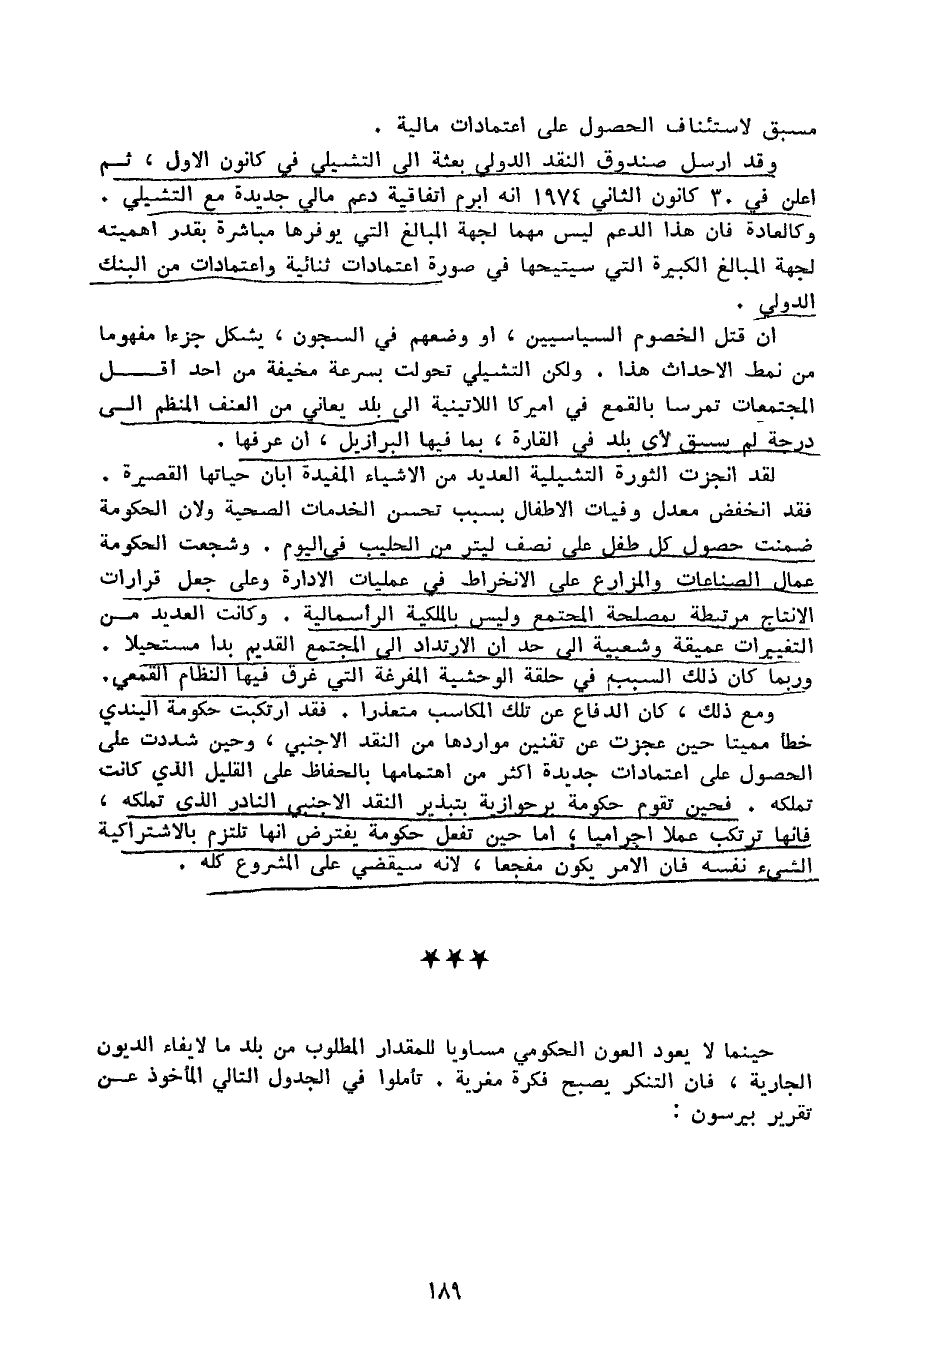 مسبق لاستئناف الحصول على اعتمادات مالية .
وقد ارسل صندوق النقد الدولي بعثة الى التشيلي في كانون الاول ، ثــم
اعلن في ٣٠ كانون الثاني ١٩٧٤ انه ابرم اتفاقية دعم مالي جديدة مع التشيلي .
وكالعادة فان هذا الدعم ليس مهما لجهة المبالغ التي يوفرها مباشرة بقدر اهميته
لجهة المبالغ الكبيرة التي سيتيحها في صورة اعتمادات ثنائية واعتمادات من البنك
الدولي .
ان قتل الخصوم السياسيين ، او وضعهم في السجون ، يشكل جزءا مفهوما
من نمط الاحداث هذا . ولكن التشيلي تحولت بسرعة مخيفة من احد أقــــل
المجتمعات تمرسا بالقمع في اميركا اللاتينية الى بلد يعاني من العنف المنظم الــى
درجة لم يسبق لأى بلد في القارة ، بما فيها البرازيل ، ان عرفها .
لقد انجزت الثورة التشيلية العديد من الاشياء المفيدة ابان حياتها القصيرة .
فقد انخفض معدل وفيات الاطفال بسبب تحسن الخدمات الصحية ولان الحكومة
ضمنت حصول كل طفل على نصف ليتر من الحليب في اليوم . وشجعت الحكومة
عمال الصناعات والمزارع على الانخراط في عمليات الادارة وعلى جعل قرارات
الانتاج مرتبطة بمصلحة المجتمع وليس بالملكية الرأسمالية . وكانت العديد مــن
التغييرات عميقة وشعبية الى حد ان الارتداد الى المجتمع القديم بدا مستحيلا .
وربما كان ذلك السبب في حلقة الوحشية المفرغة التي غرق فيها النظام القمعي.
ومع ذلك ، كان الدفاع عن تلك المكاسب متعذرا . فقد ارتكبت حكومة اليندي
خطأ مميتا حين عجزت عن تقنين مواردها من النقد الاجنبي ، وحين شددت على
الحصول على اعتمادات جديدة اكثر من اهتمامها بالحفاظ على القليل الذي كانت
تملكه . فحين تقوم حكومة برجوازية بتبذير النقد الاجنبي النادر الذى تملكه ،
فانها ترتكب عملا اجراميا ؛ اما حين تفعل حكومة يفترض انها تلتزم بالاشتراكية
الشيء نفسه فان الامر يكون مفجعا ، لانه سيقضي على المشروع كله .
★★★
حينما لا يعود العون الحكومي مساويا للمقدار المطلوب من بلد ما لايفاء الديون
الجارية ، فان التنكر يصبح فكرة مغرية . تأملوا في الجدول التالي المأخوذ عــن
تقرير بيرسون :
١٨٩